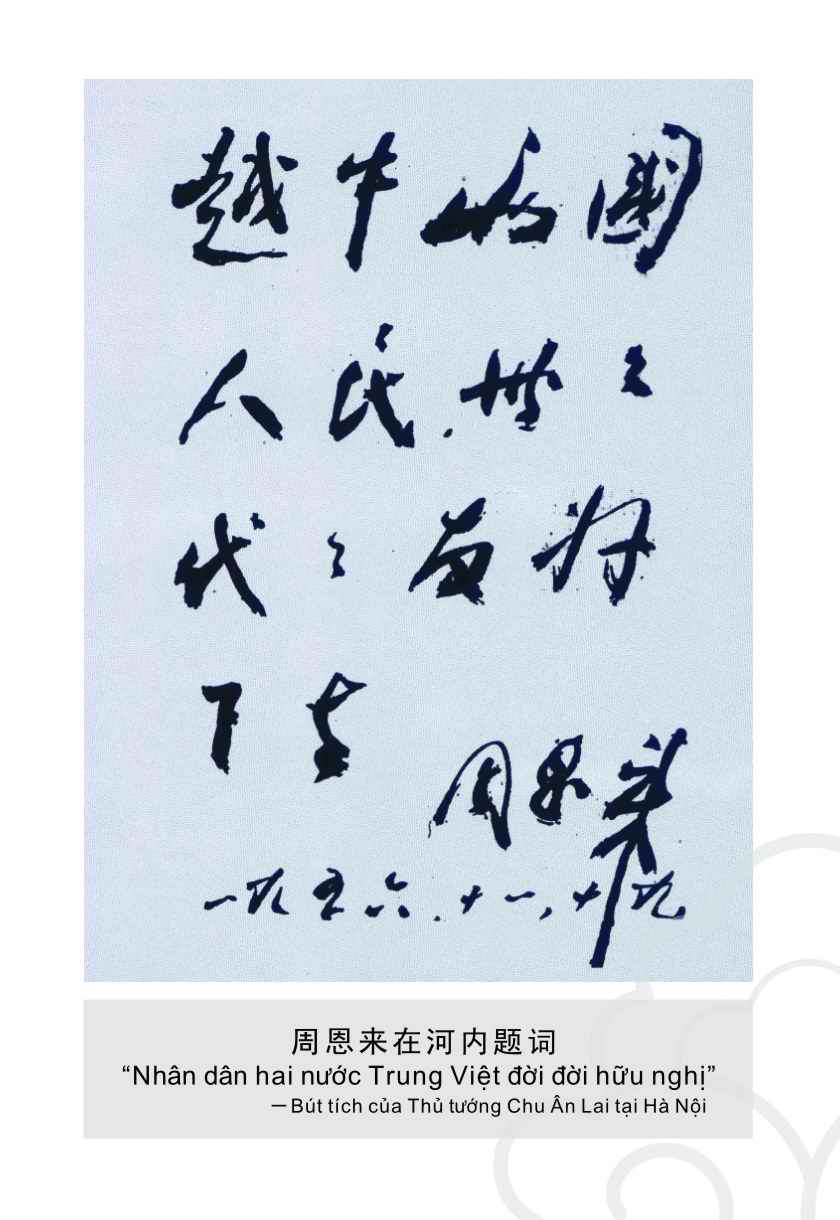 越中两国
人民.世々
代々友好
下去
周恩来
一九五六.十一,十九
周恩来在河内题词
“Nhân dân hai nước Trung Việt đời đời hữu nghị”
－Bút tích của Thủ tướng Chu Ân Lai tại Hà Nội